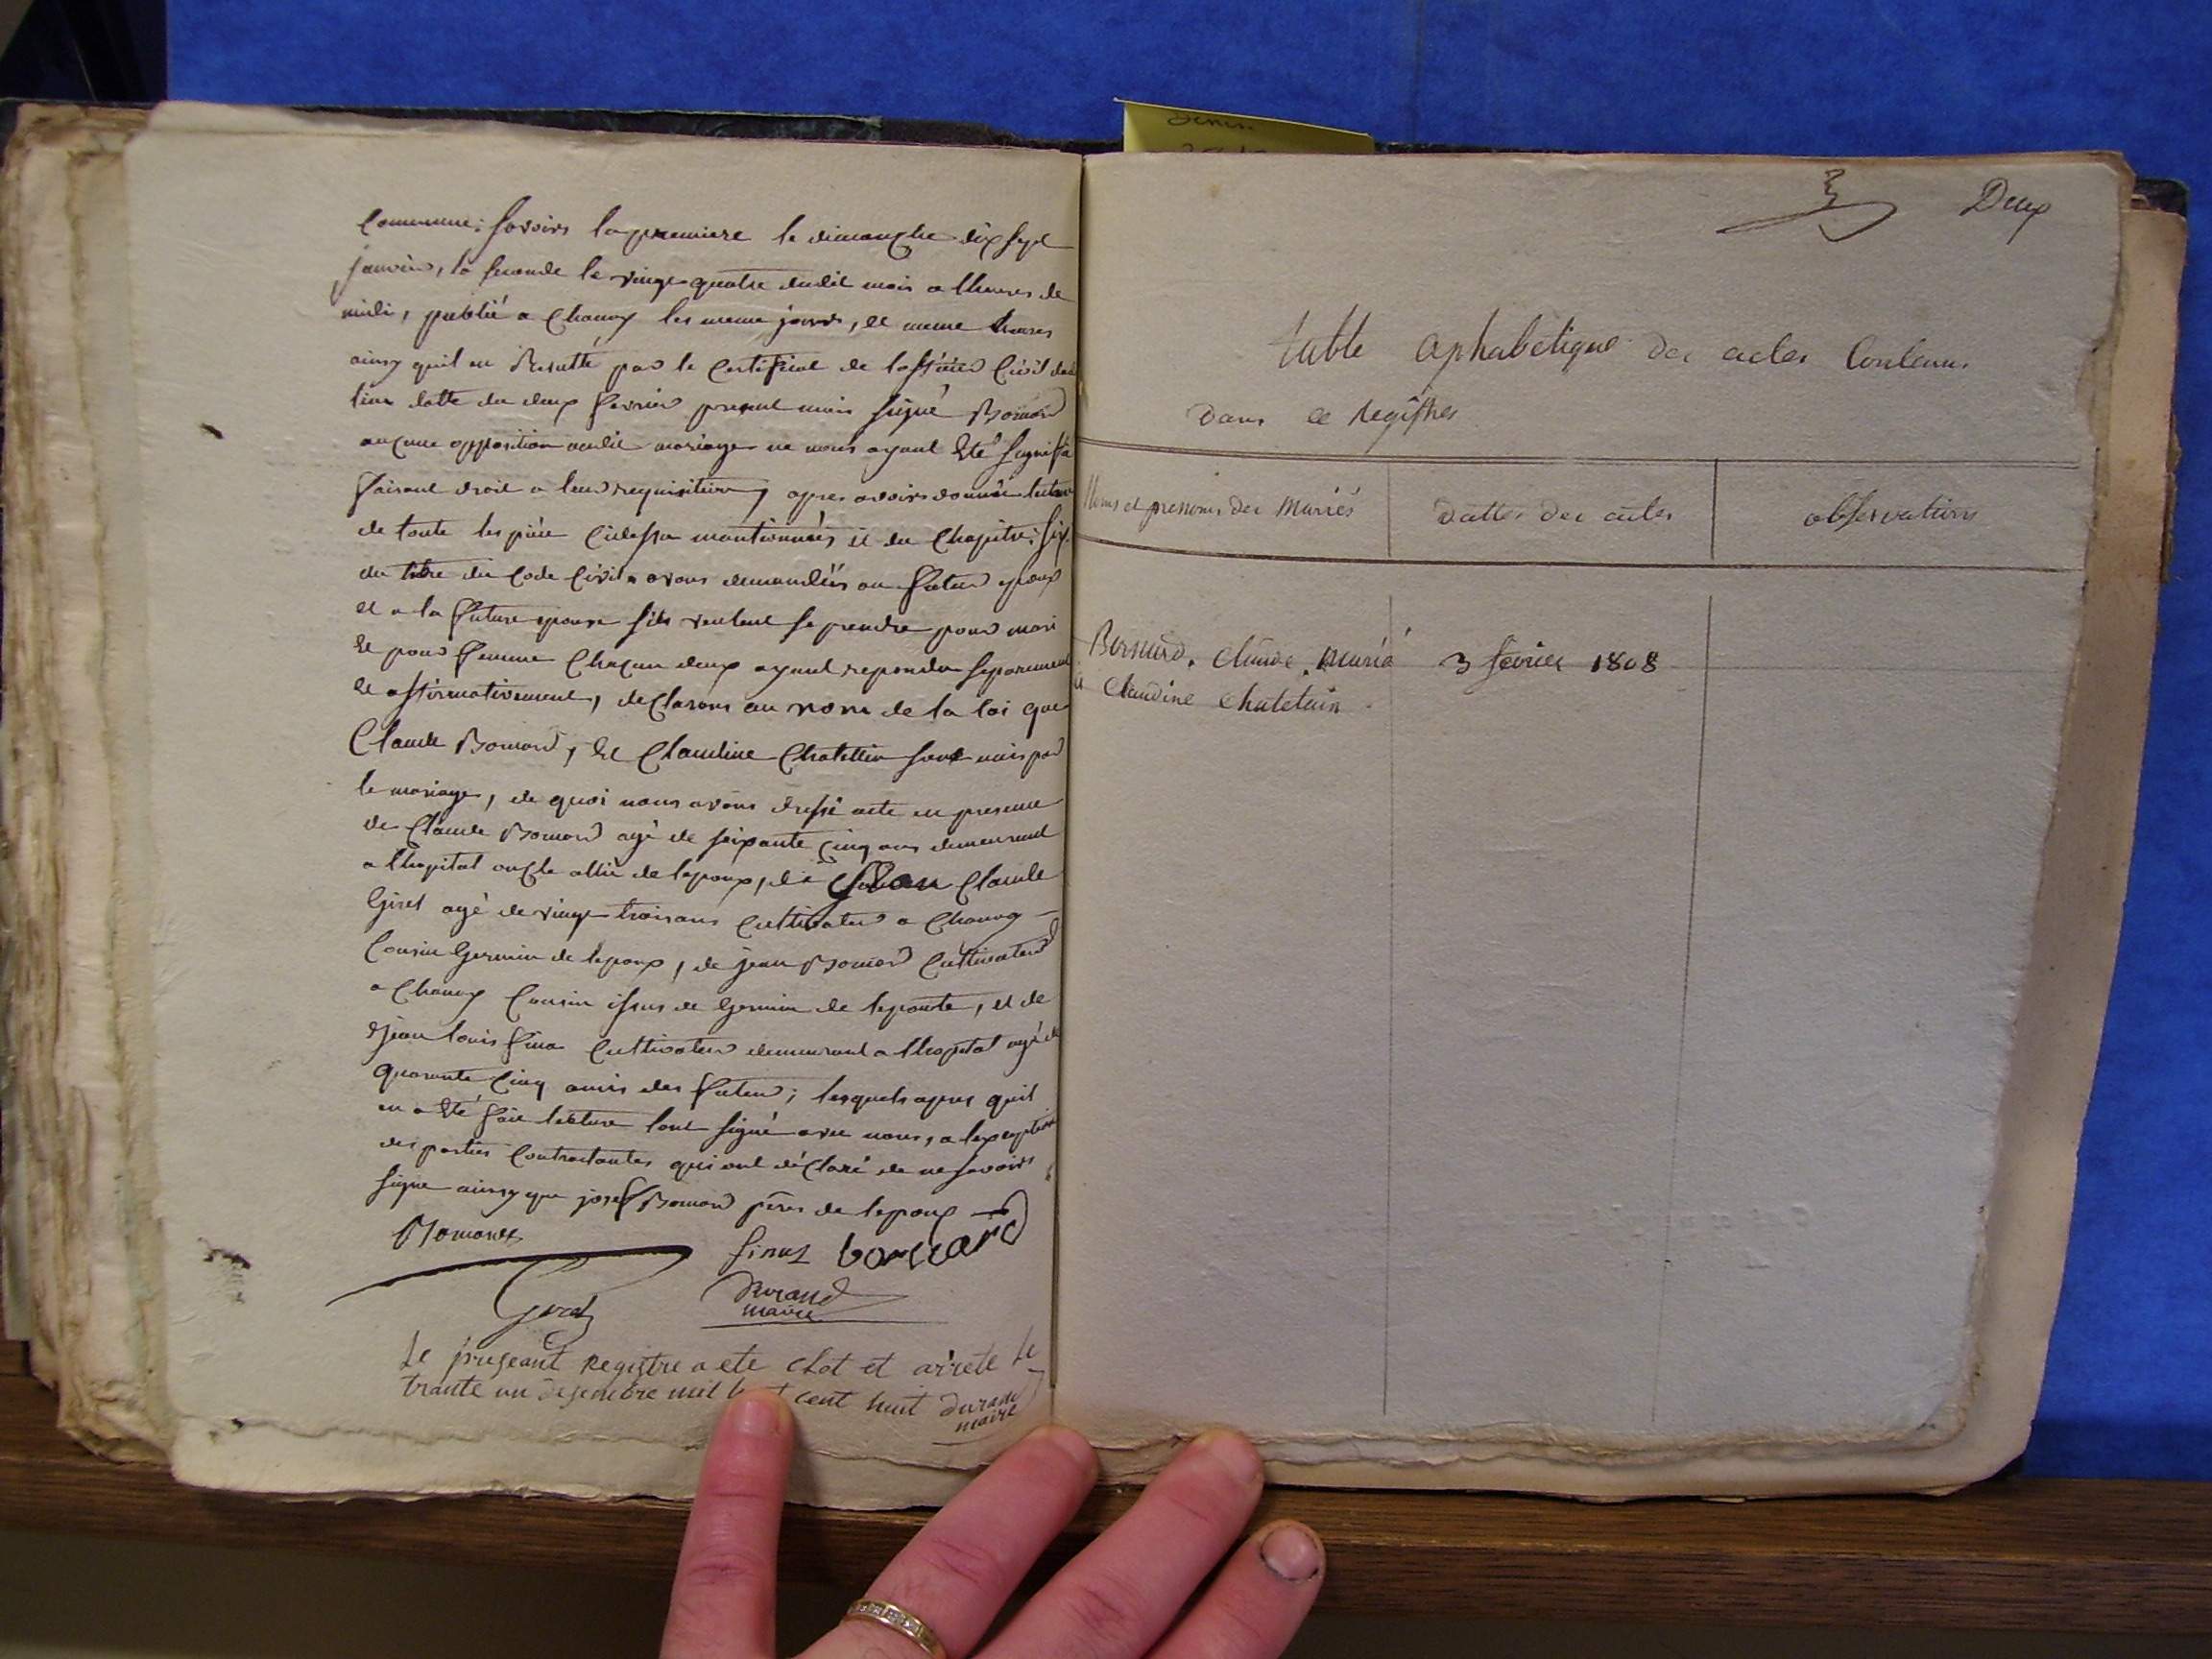 Commune; savoirs la premiere le dimanche dix sept
janvier, la seconde le vingt quatre dudit mois a lheures de
midi, publié a Chauvy les meme jours, et meme heures
ainsy quil en Resulte par le Certificat de lofficier Civil dud
lieu datte du deux fevrier present mois signé
aucune opposition audit mariage ne nous ayant Eté signifié
faisant droit a leur requisition, apres avoir donnée lecture
de toute les pièce Cidessu mantionnées et du Chapitre: six
du titre du Code Civil avons demandées au futur epoux
et a la future epouse sils veulent se prendre pour mari
Et pour femme Chacun deux ayant repondu separement
Et affirmativement, declarons au nom de la loi que
Claude, Et Claudine Chatelin sont unis par
le mariage, de quoi nous avons dressé acte en presence
de Claude agé de soixante cinq ans demeurant
a lhopital oncle allié de lepoux, de Claude
Giret agé de vingt trois ans Cultivateur a Chauvy
Cousin Germin de lepoux, de jean Cultivateur
a Chauvy Cousin issus de Germin de lepouse, et de
jean louis Cultivateur demeurant a lhopital agé de
quarante Cinq amis des futur; lesquels apres quil
en a Eté fait lecture lont signé avec nous, a lexception
des parties Contractantes qui ont déclaré de ne savoirs
signe ainsy que josef père de lepoux
Giret Durand
maire
Le preseant Registre a ete clot et arrete le
trante un desembre mil cent huit durand
maire
Deux
table aphabetique des actes Contenus
dans ce Registres
Noms et prenoms des Mariés dattes des actes observations
Bernard, Claude, Marié 3 fevrier 1808
a Claudine Chatelain